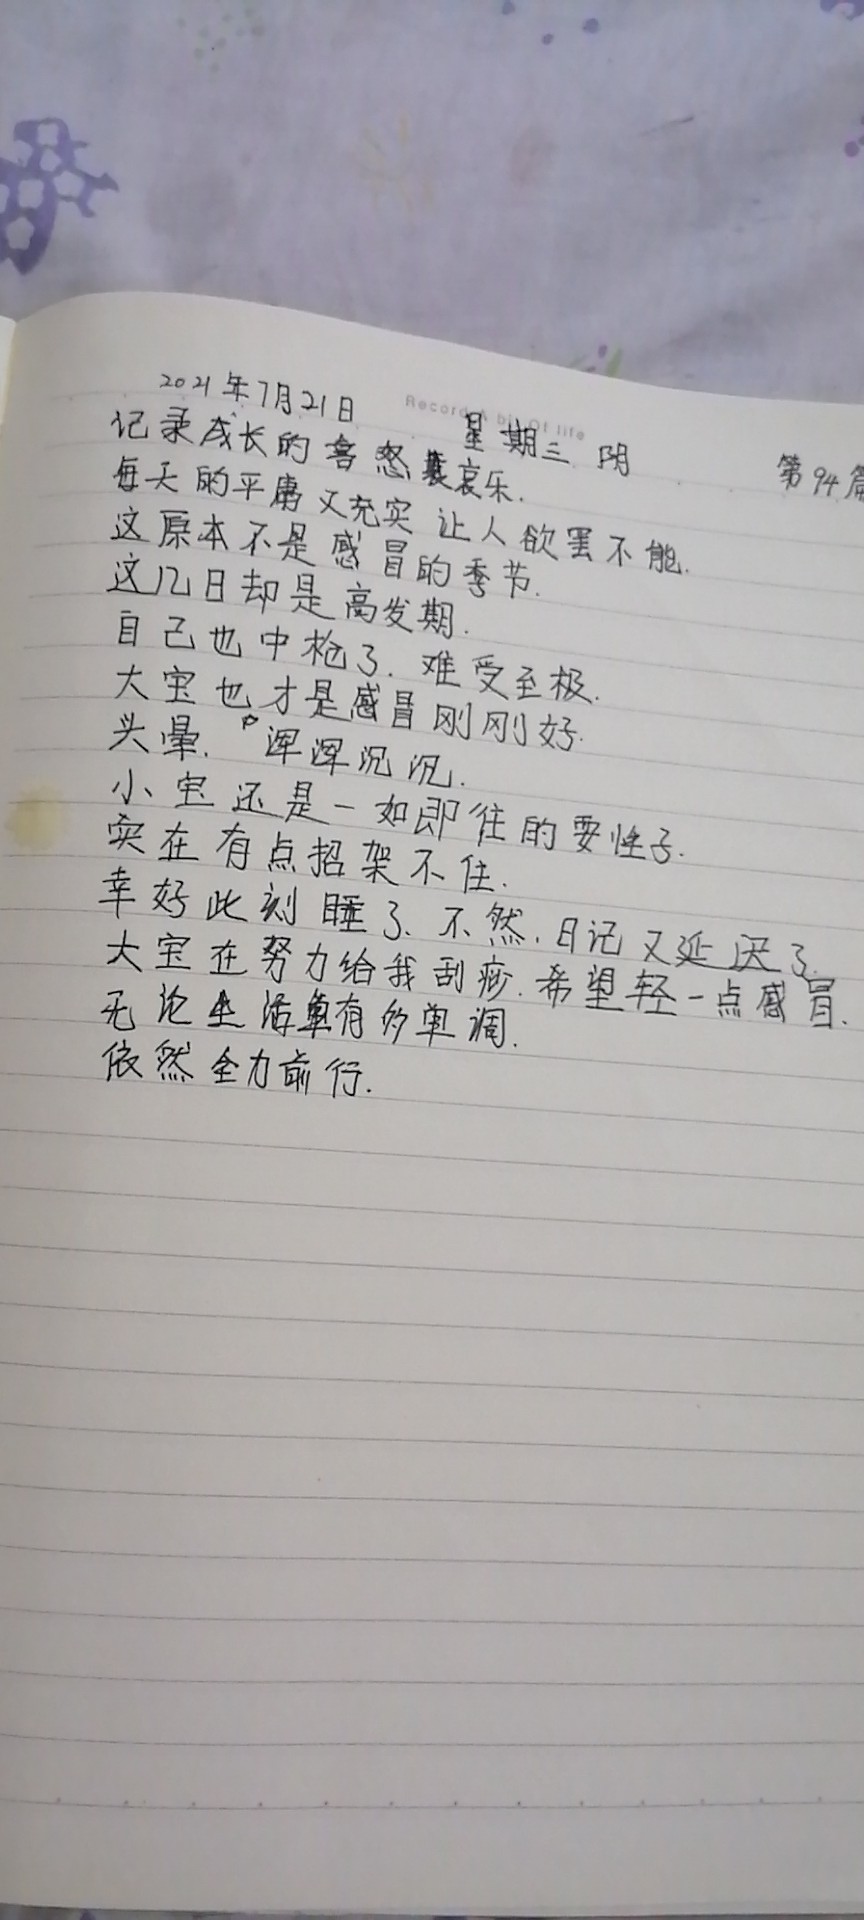 Record A bit Of life
2021年7月21日 星期三 阴 第94篇
记录成长的喜怒哀乐.
每天的平庸又充实 让人欲罢不能.
这原本不是感冒的季节.
这几日却是高发期.
自己也中枪了. 难受至极.
大宝也才是感冒刚刚好.
头晕. 浑浑沉沉.
小宝还是一如即往的耍性子.
实在有点招架不住.
幸好此刻睡了. 不然. 日记又延迟了.
大宝在努力给我刮痧. 希望轻一点感冒.
无论生活有多单调.
依然全力前行.